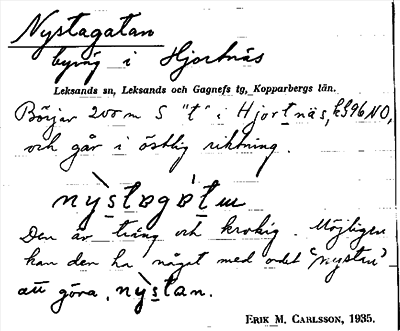 Nystagatan
byväg i Hjortnäs
Leksands sn, Leksands och Gagnefs tg, Kopparbergs län.
Börjar 200 m S "t" i Hjortnäs, NO,
och går i östlig riktning.
Den är trång och krokig. Möjligen
kan den ha något med ordet "nystru"
att göra, nỳstan.
ERIK M. CARLSSON, 1935.